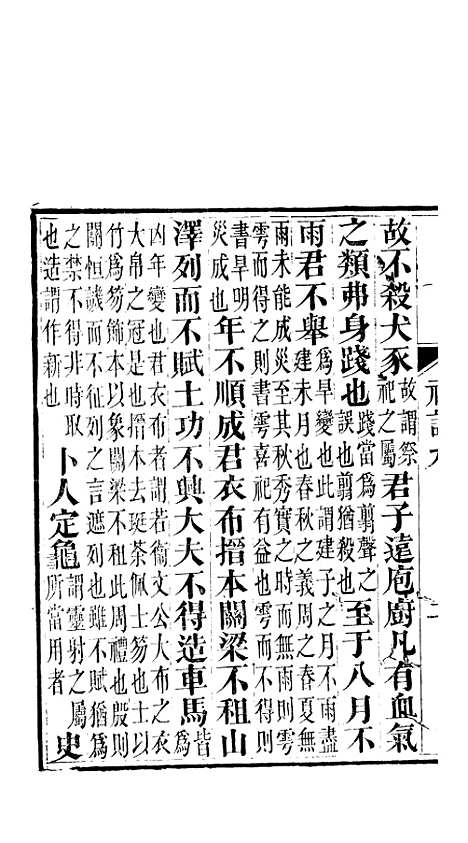 故不殺犬豕故謂祭祀之屬君子遠庖廚凡有血氣
之類弗身踐也踐當爲翦聲之誤也翦猶殺也至于八月不
雨君不舉爲旱變也此謂建子之月不雨盡建未月也春秋之義周之春夏無
雨未能成災至其秋秀實之時而無雨則雩雩而得之則書雩喜祀有益也雩而不得則
書旱明災成也年不順成君衣布搢本關梁不租山
澤列而不賦土功不興大夫不得造車馬皆爲
凶年變也君衣布者謂若衞文公大布之衣大帛之冠是也搢本去珽荼佩士笏也士以
竹爲笏飾本以象關梁不租此周禮也殷則關恒譏而不征列之言遮列也雖不賦猶爲
之禁不得非時取也造謂作新也卜人定龜謂靈射之屬所當用者史